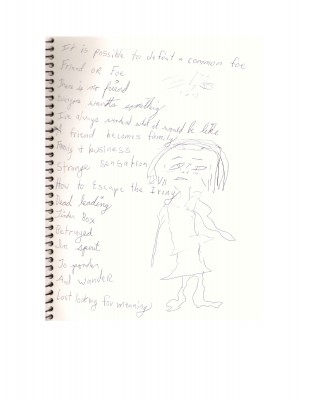 It is possible to defeat a common foe
Friend or Foe
There is no friend
everyone wants something
I've always wondered what it would be like
A friend becomes family
Family & business
Strange sensation
How to Escape the Irony
Dead leading
Tinder Box
Betrayed
The spirit
To ponder
And wonder
Lost looking for meaning